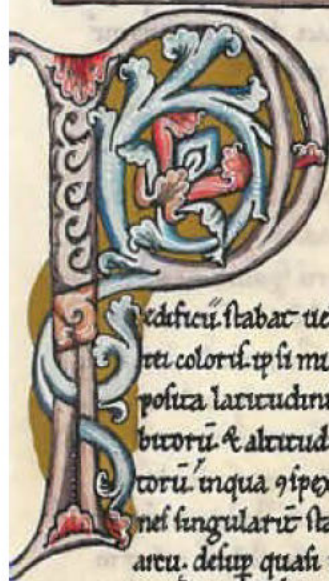 P
edificiū stabat ue
rei coloris. ip̄si mu
posita latitudinē
bitorū & altitud
torū. inqua ꝯspex
nes singulariū sta
arcu. desup quasi